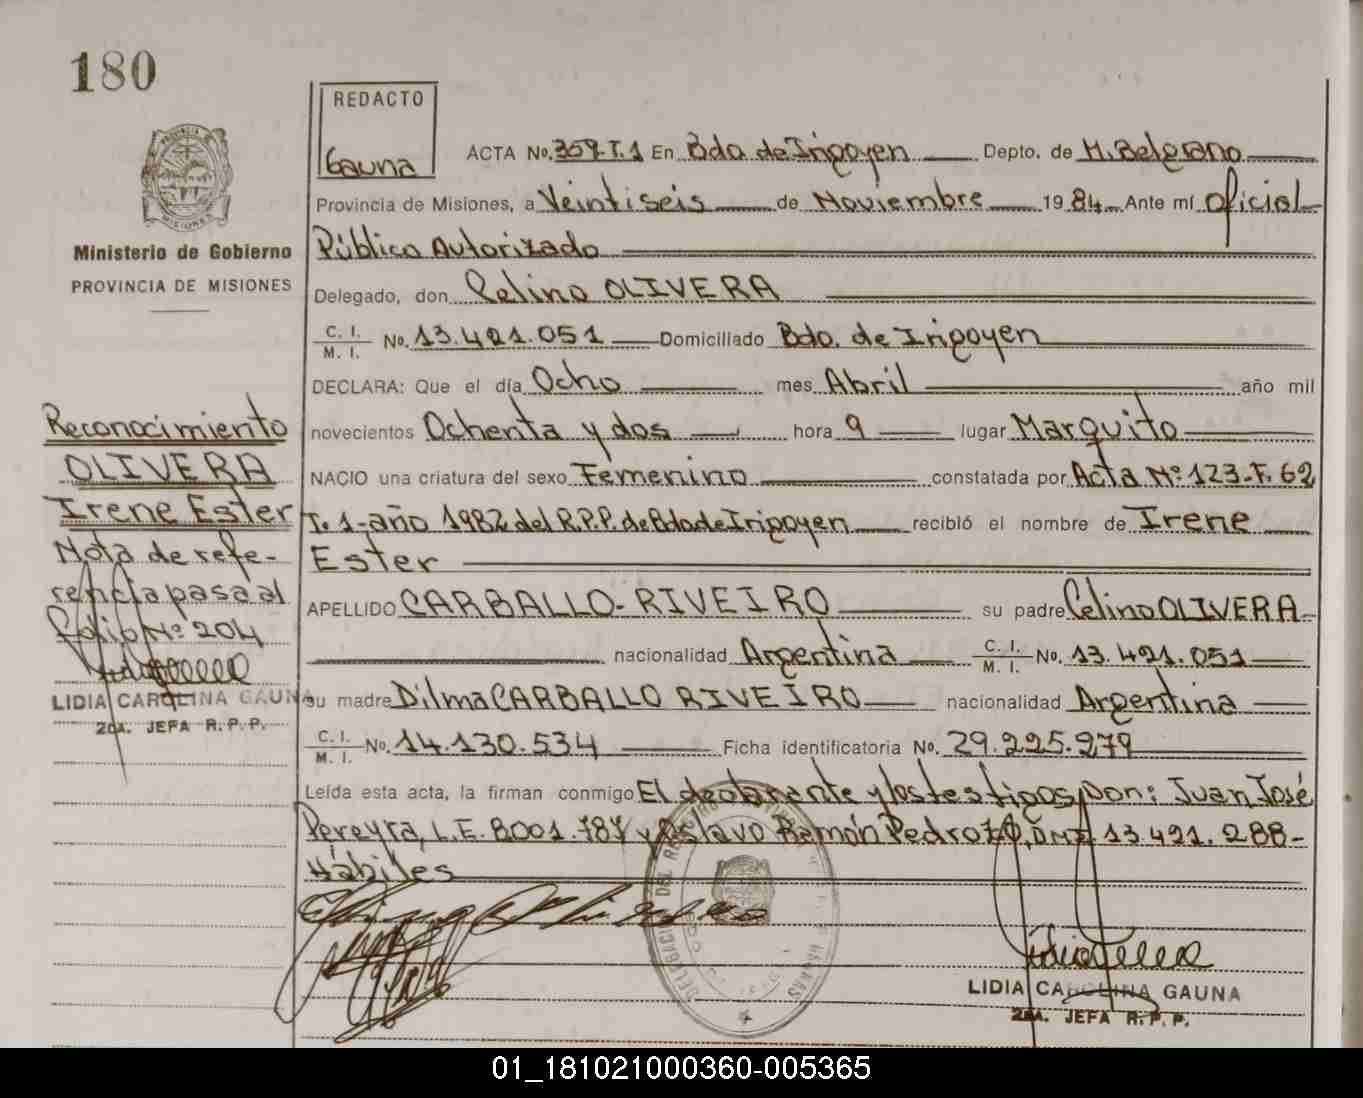 180
REDACTO
Gauna
ACTA No. 359.T.1 En Bdo. de Irigoyen Depto. de M. Belgrano
Provincia de Misiones, a Veintiseis de Noviembre 1984 Ante mí Oficial
Público Autorizado
Ministerio de Gobierno
PROVINCIA DE MISIONES
Delegado, don Celino OLIVERA
C. I.
M. I. No. 13.421.051 Domiciliado Bdo. de Irigoyen
DECLARA: Que el día Ocho mes Abril año mil
novecientos Ochenta y dos hora 9 lugar Marquito
NACIO una criatura del sexo Femenino constatada por Acta Nº 123-F. 62
T. 1-año 1982 del R.P.P. de Bdo de Irigoyen recibió el nombre de Irene
Ester
APELLIDO CARBALLO-RIVEIRO su padre Celino OLIVERA
nacionalidad Argentina C. I. M. I. No. 13.421.051
su madre Dilma CARBALLO RIVEIRO nacionalidad Argentina
C. I. M. I. No. 14.130.534 Ficha identificatoria No. 29.225.279
Leída esta acta, la firman conmigo El declarante y los testigos Don: Juan José
Pereyra, L.E. 8001.787 y Ramón Pedrozo, DNI 13.421.288-
Hábiles
Reconocimiento
OLIVERA
Irene Ester
Nota de refe-
rencia pasa al
folio Nº 204
LIDIA CAROLINA GAUNA
2da. JEFA R.P.P.
LIDIA CAROLINA GAUNA
2da. JEFA R.P.P.
01_181021000360-005365